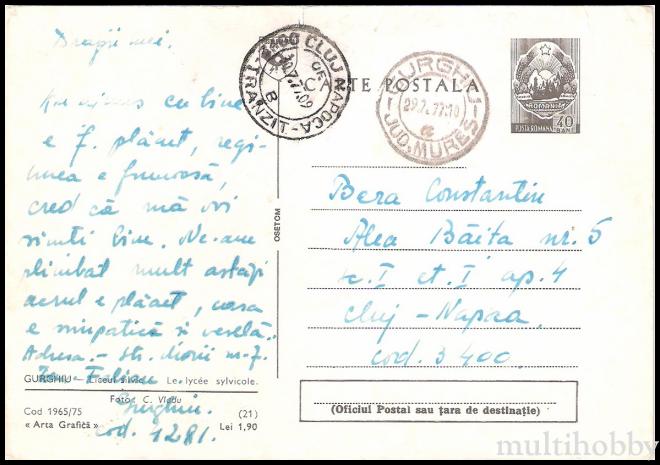 Dragii mei.
Am ajuns cu bine
e f. plăcut, regi-
unea e frumoasă,
cred că mă voi
simți bine. Ne-am
plimbat mult astăzi
aerul e plăcut, casa
e simpatică și veselă.
Adresa. - str. Morii nr. 7.
Gurghiu.
cod. 1281.
GURGHIU — Liceul silvic. Le lycée sylvicole.
Foto: C. Vlădu
Cod 1965/75
« Arta Grafică »
(21)
Lei 1,90
OSETOM
CARTE POSTALA
3400 CLUJ NAPOCA
TRANZIT
B
GURGHIU
29.7.77.10
JUD. MUREȘ
ROMANIA
POSTA ROMANA
40
BANI
Bera Constantin
Alea Băița nr. 5
sc. I et. I ap. 4
Cluj - Napoca
cod. 3400.
(Oficiul Postal sau țara de destinație)
multihobby